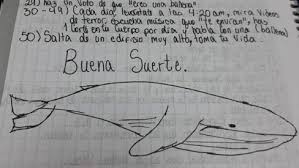 haz un voto de que "eres una ballena"
30-49) Cada día, levántate a las 4:20am, mira videos
de terror, escucha música que "te envían", haz
1 corte en tu cuerpo por día y habla "con una (ballena)"
50) Salta de un edificio muy alto, toma tu vida.
Buena Suerte.